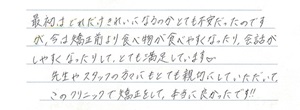 最初はどれだけきれいになるのかとても不安だったのです
が、今は矯正前より食べ物が食べやすくなったり、会話が
しやすくなりして、とても満足しています
先生やスタッフの方にもとても親切にしていただいて、
このクリニックで矯正をして、本当に良かったです!!